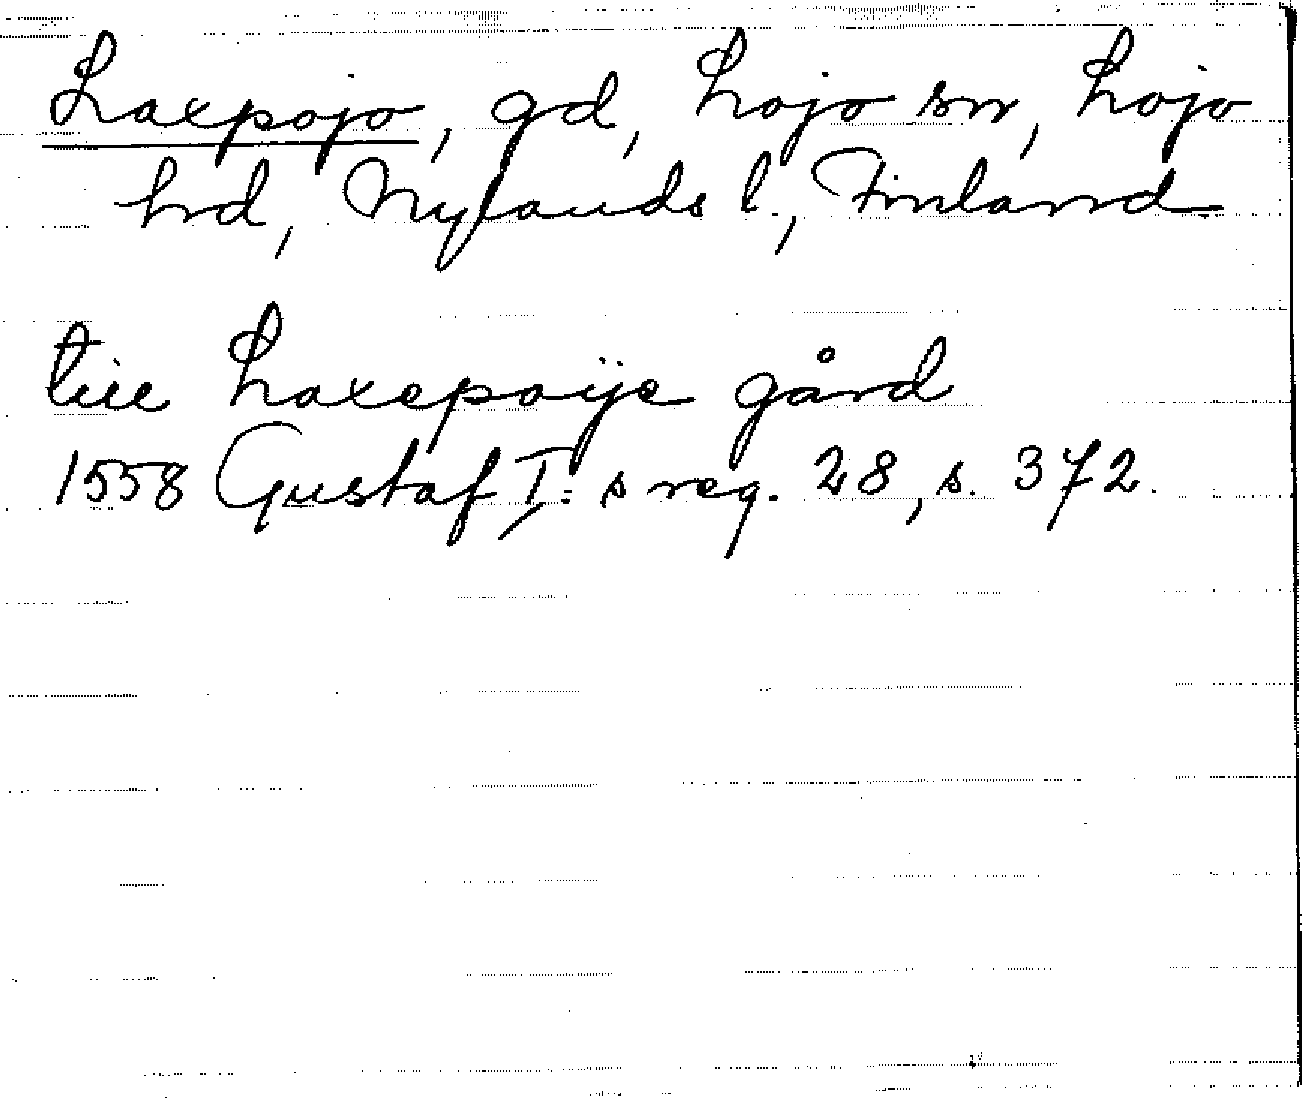 Laxpojo, gd, Lojo sn, Lojo
hd, Nylands l., Finland
till Laxepoije gård
1558 Gustaf I: s reg. 28, s. 372.